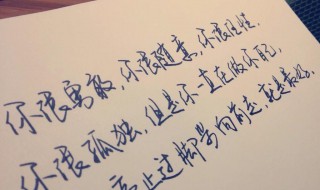 你很勇敢，你很随意，你很任性，
你很孤独，但是你一直在做你自己，
停止过脚步向前走，就是最好，